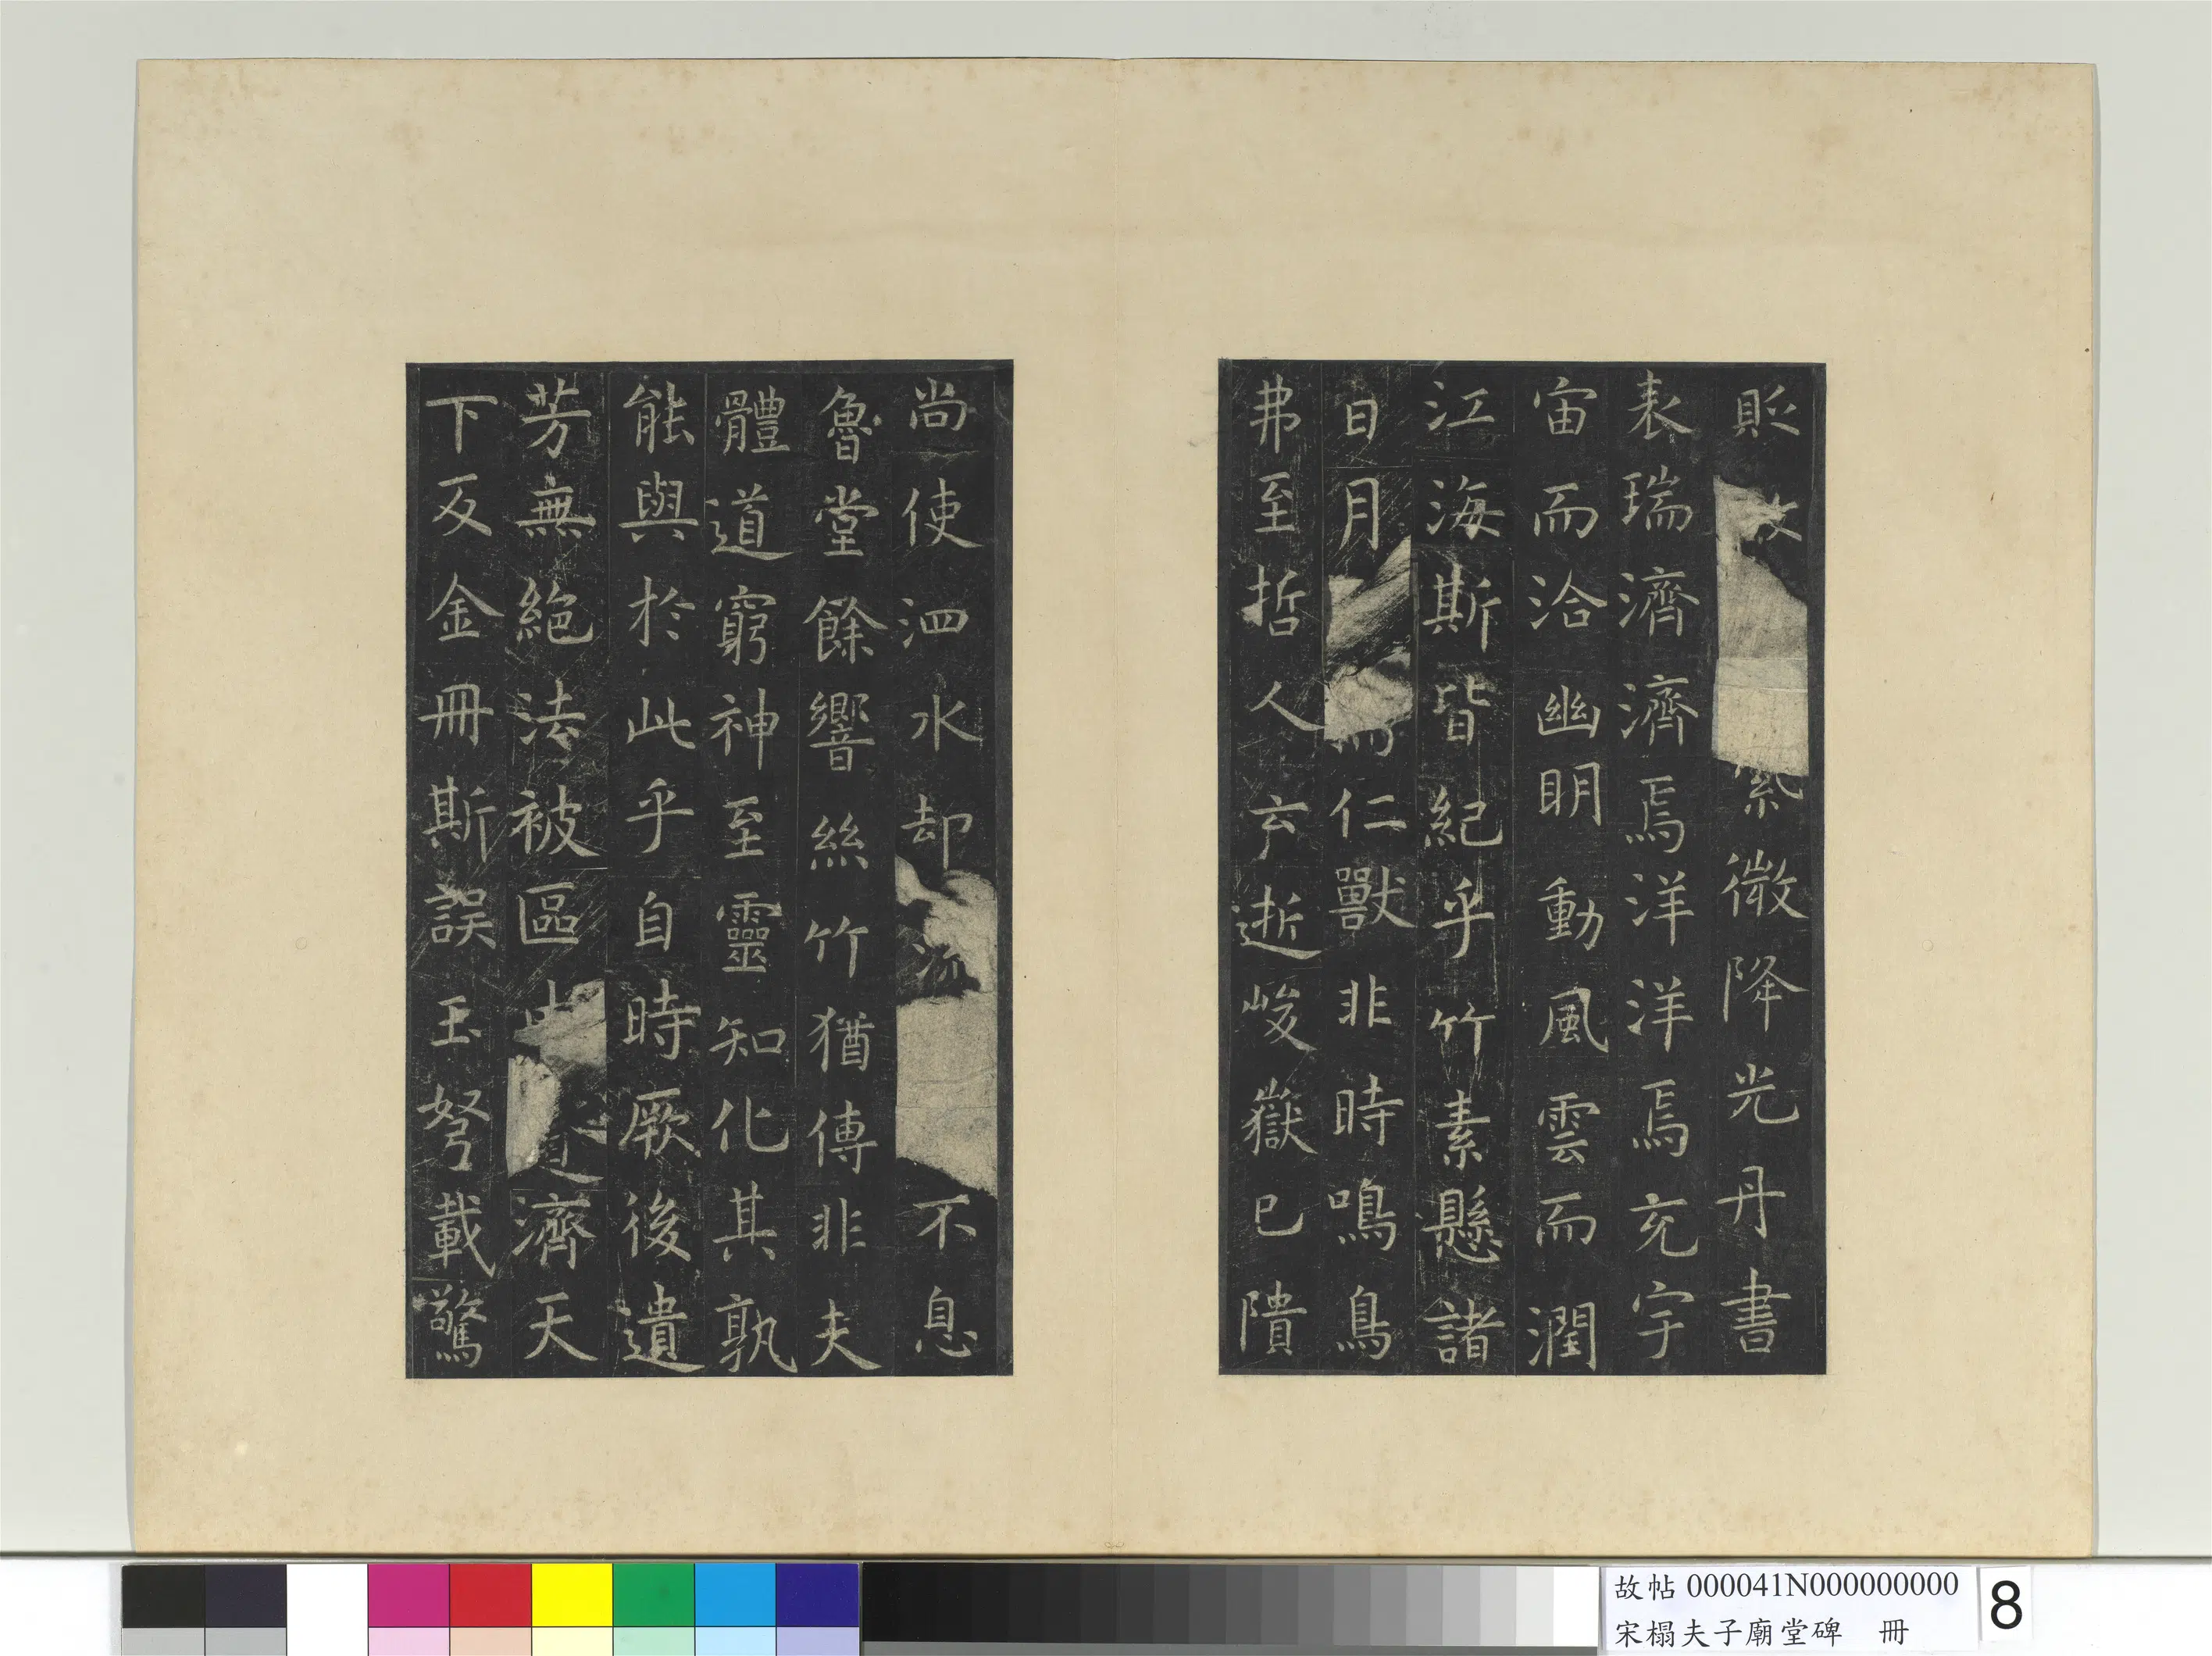 貶
紫微降光丹書
表瑞濟濟焉洋洋焉充宇
宙而洽幽明動風雲而潤
江海斯皆紀乎竹素懸諸
日月仁獸非時鳴鳥
弗至哲人云逝峻嶽已隤
尚使泗水却流不息
魯堂餘響絲竹猶傳非夫
體道窮神至靈知化其孰
能與於此乎自時厥後遺
芳無絕法被區中道濟天
下及金冊斯誤玉弩載驚
故帖 000041N000000000
宋榻夫子廟堂碑 冊
8